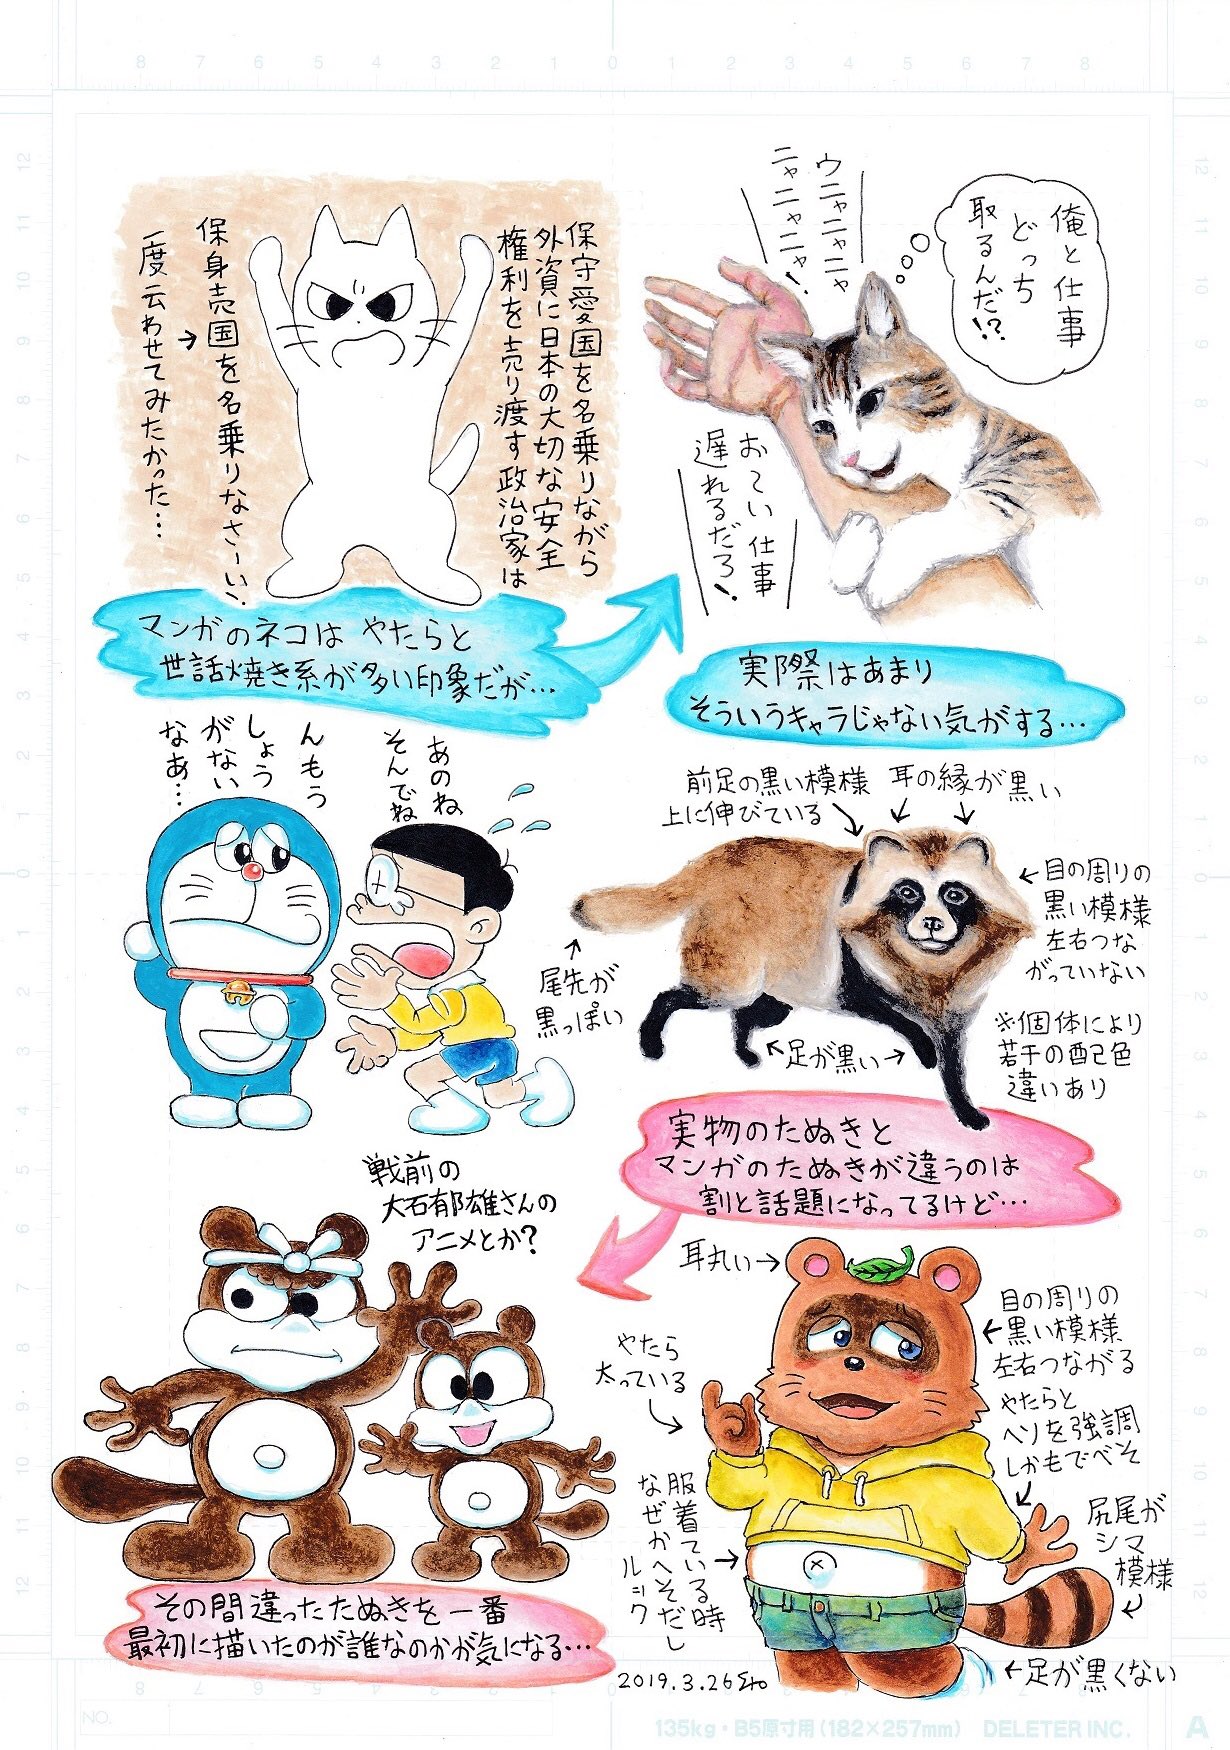 保守愛国を名乗りながら
外資に日本の大切な安全
権利を売り渡す政治家は
保身売国を名乗りなさーい!
↓
一度云わせてみたかった…
マンガのネコは やたらと
世話焼き系が多い印象だが…
俺と仕事
どっち
取るんだ!?
ウニャニャニャ
ニャニャニャ!
おーい仕事
遅れるだろ!
実際はあまり
そういうキャラじゃない気がする…
あのね
そんでね
んもう
しょう
がない
なあ…
前足の黒い模様
上に伸びている
耳の縁が黒い
←目の周りの
黒い模様
左右つな
がっていない
尾先が
黒っぽい
←足が黒い→
※個体により
若干の配色
違いあり
実物のたぬきと
マンガのたぬきが違うのは
割と話題になってるけど…
戦前の
大石郁雄さんの
アニメとか?
耳丸い→
目の周りの
←黒い模様
左右つながる
やたら
太っている
やたらと
ヘソを強調
しかもでべそ
服着ている時
なぜかへそだし
ルック
尻尾が
シマ
模様
←足が黒くない
その間違ったたぬきを一番
最初に描いたのが誰なのかが気になる…
2019.3.26
NO.
135kg・B5原寸用(182×257mm) DELETER INC.
A